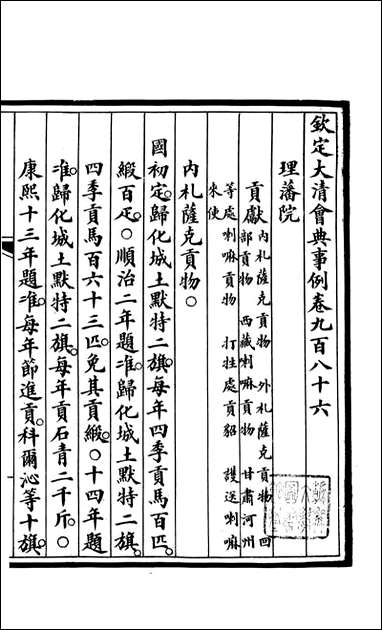 欽定大清會典事例卷九百八十六
理藩院
貢獻內札薩克貢物　外札薩克貢物　回
部貢物　西藏喇嘛貢物　甘肅河州
等處喇嘛貢物　打牲處貢貂　護送喇嘛
來使
內札薩克貢物○
國初定。歸化城土默特二旗。每年四季貢馬百匹。
緞百疋。○順治二年題准。歸化城土默特二旗。
四季貢馬百六十三匹。免其貢緞。○十四年題
准。歸化城土默特二旗。每年貢石青二千斤。○
康熙十三年題准。每年節進貢。科爾沁等十旗。